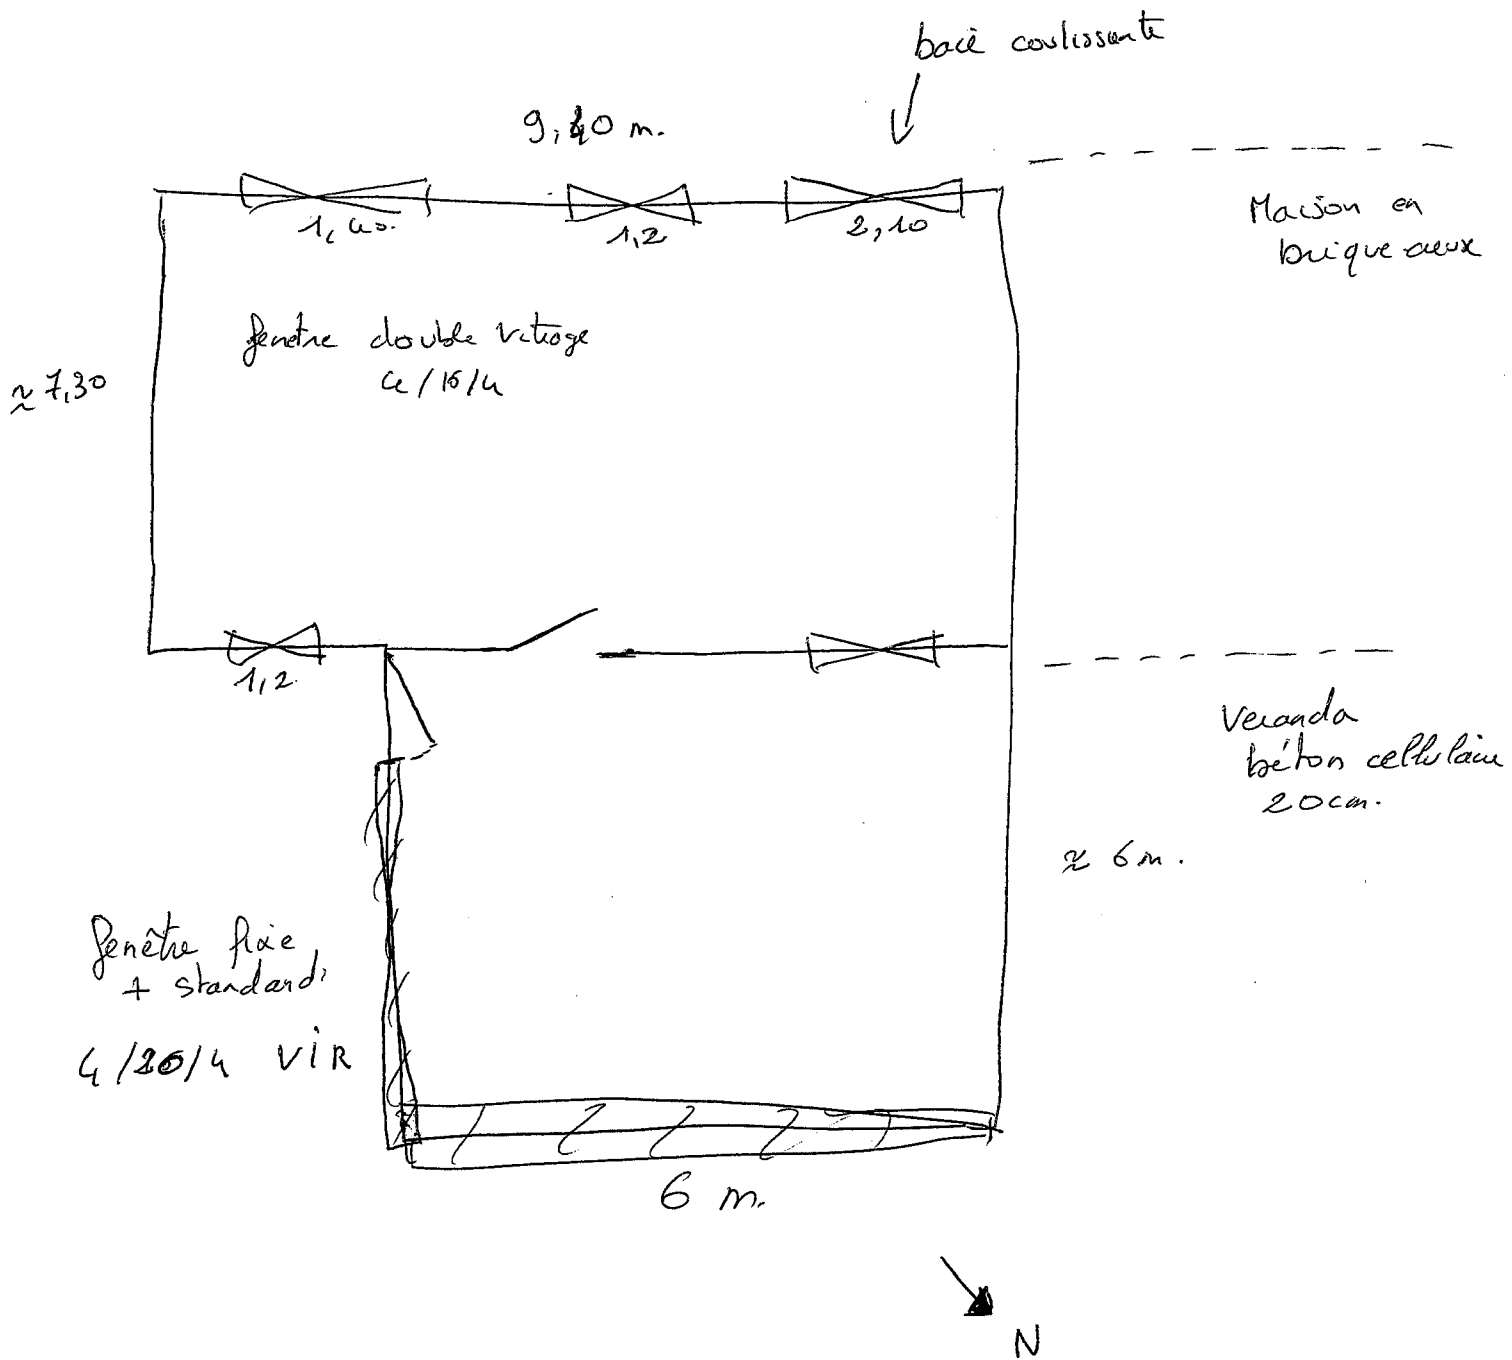 baie coulissante
9,40 m.
1,40.
1,2
2,10
Maison en
brique creux
fenêtre double vitrage
4/16/4
≈ 7,30
1,2
Veranda
béton cellulaire
20cm.
≈ 6m.
fenêtre fixe
+ standard
4/20/4 VIR
6 m.
N